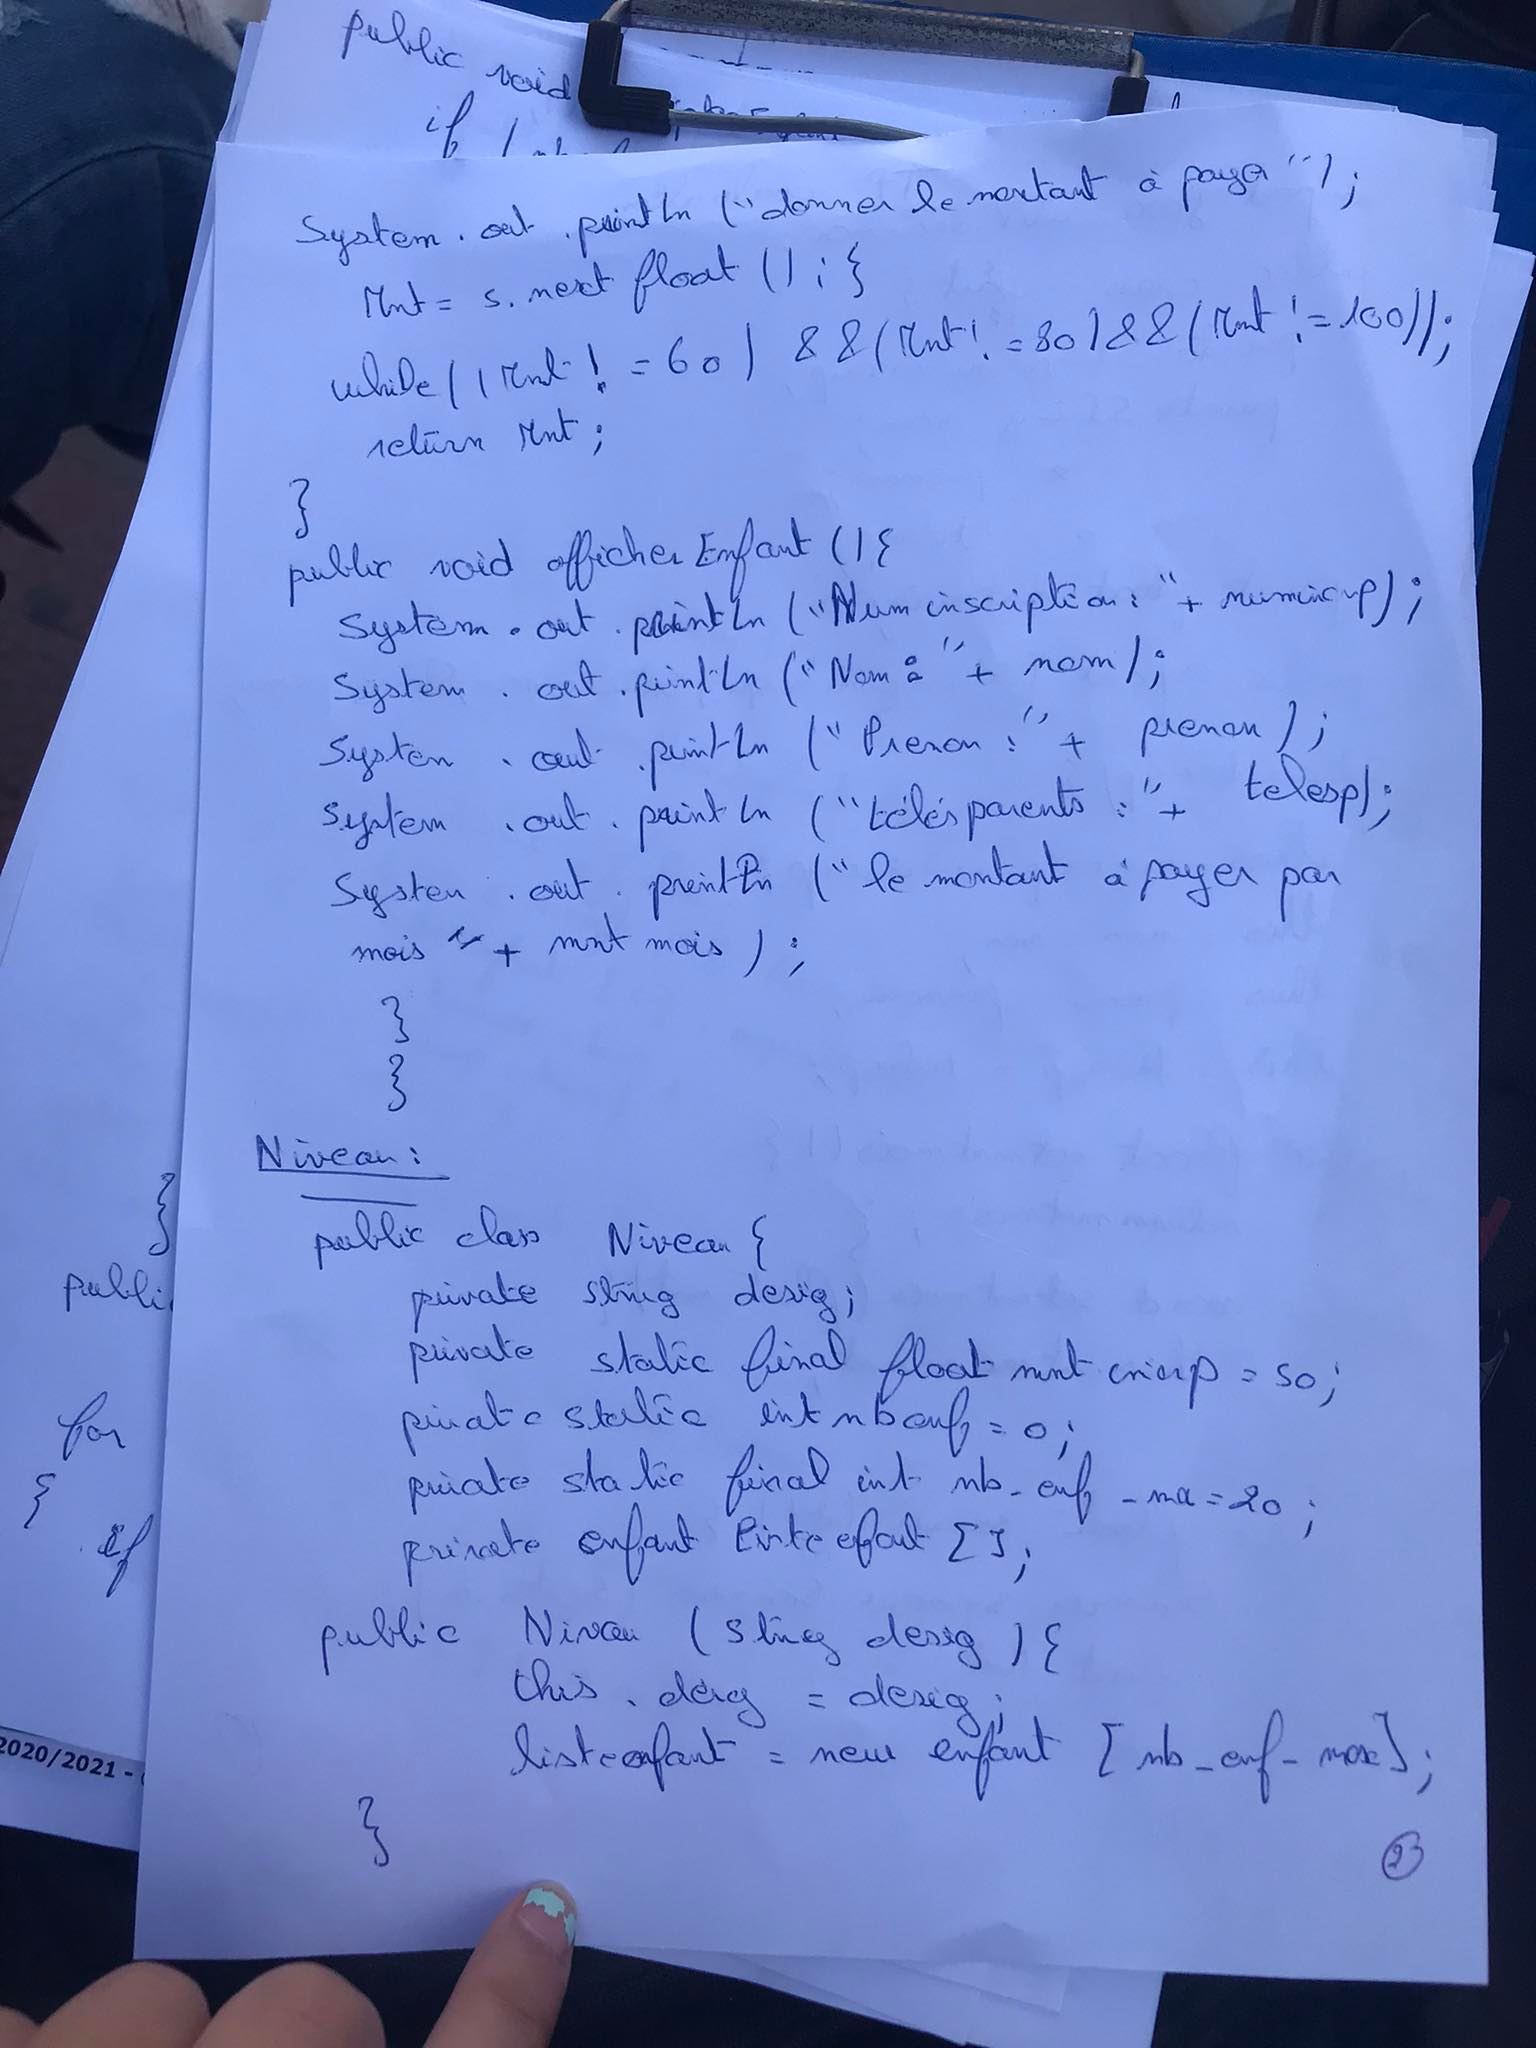 public void
if (
System.out.println ("donner le montant à payer");
Mnt = s.next float (); }
while ((Mnt != 60) && (Mnt != 80) && (Mnt != 100));
return Mnt;
}
public void afficher Enfant () {
System.out.println ("Num inscription : " + numinsp);
System.out.println ("Nom : " + nom);
System.out.println ("Prenom : " + prenom);
System.out.println ("télésparents : " + telesp);
System.out.println ("le montant à payer par
mois " + mnt mois);
}
}
Niveau :
public class Niveau {
private string desig;
private static final float mnt = 50;
private static int nbenf = 0;
private static final int nb_enf_ma = 20;
private enfant listeefant [];
public Niveau (string desig) {
this.desig = desig;
listeenfant = new enfant [nb_enf_max];
}
2
}
public
for
{
if
2020/2021 -